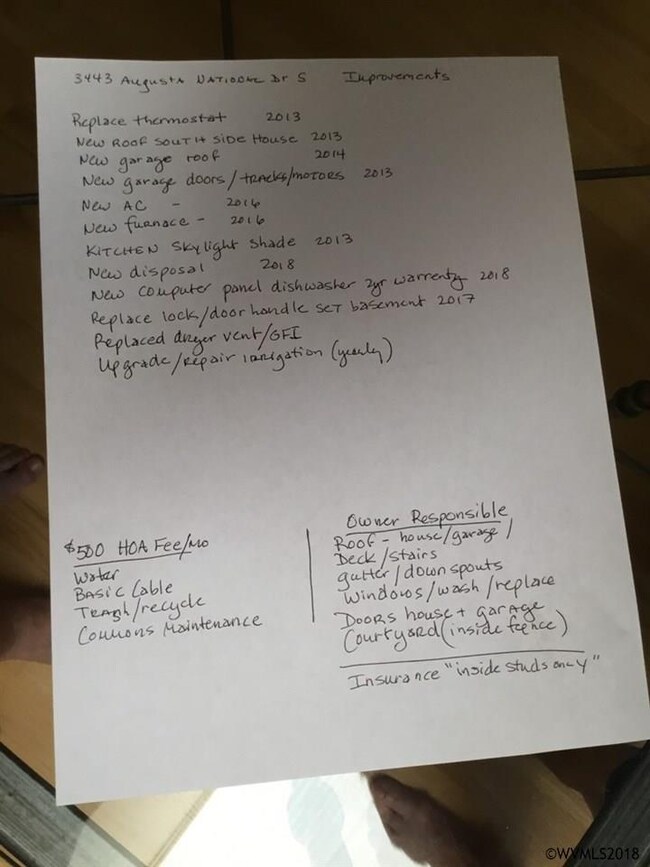 3443 Augusta National Dr S Improvements
Replace thermostat 2013
New Roof South Side House 2013
New garage roof 2014
New garage doors/tracks/motors 2013
New AC - 2016
New furnace - 2016
Kitchen Skylight Shade 2013
New disposal 2018
New computer panel dishwasher 2yr warrenty 2018
Replace lock/door handle set basement 2017
Replaced dryer vent/GFI
Upgrade/repair irrigation (yearly)
$500 HOA Fee/mo
Water
Basic Cable
Trash/recycle
Commons Maintenance
Owner Responsible
Roof - house/garage/
Deck/stairs
gutter/down spouts
Windows/wash/replace
Doors house + garage
Courtyard (inside fence)
Insurance "inside studs only"
©WVMLS2018